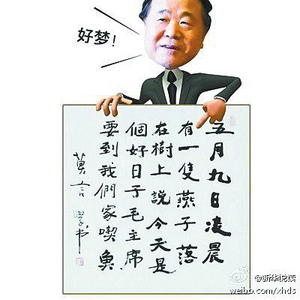 好梦！
五月九日凌晨
有一隻燕子落
在樹上說今天是
個好日子毛主席
要到我們家喫魚
莫言
@新华视点
weibo.com/xhds